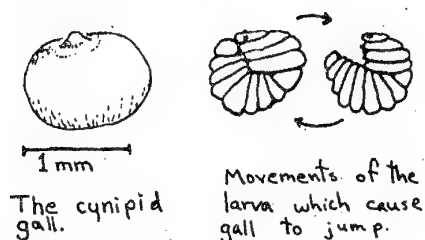 1 mm
The cynipid
gall.
Movements of the
larva which cause
gall to jump.